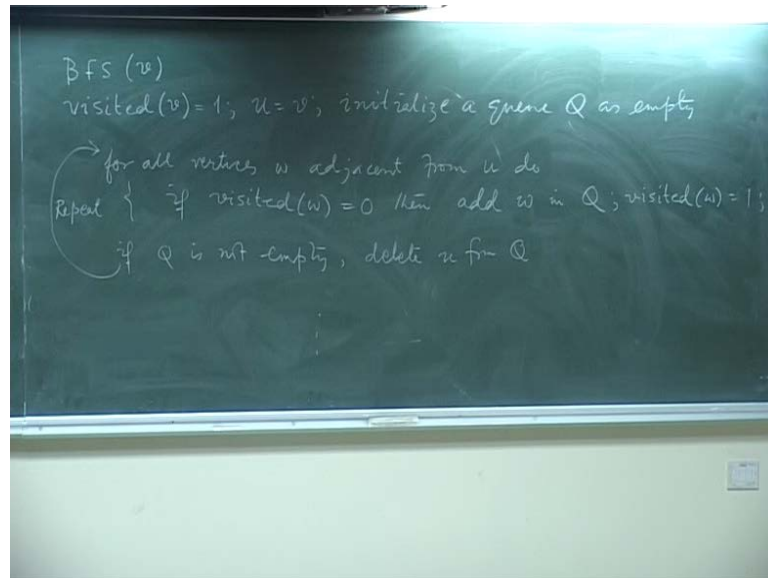 BFS (v)
visited(v) = 1; u = v; initialize a queue Q as empty
for all vertices w adjacent from u do
Repeat { if visited(w) = 0 then add w in Q; visited(w) = 1;
if Q is not empty, delete u from Q